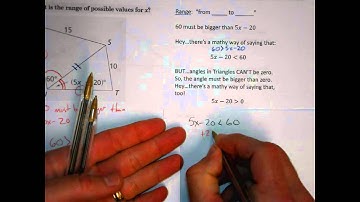 t is the range of possible values for x?
15
S
10
60°
(5x - 20)°
T
must be bigger than
x-20
60>
Range: "from ______ to ______"
60 must be bigger than 5x − 20
Hey...there's a mathy way of saying that:
60>5x-20
5x − 20 < 60
BUT...angles in Triangles CAN'T be zero.
So, the angle must be bigger than zero.
Hey...there's a mathy way of saying that, too!
5x − 20 > 0
5x-20<60
+2